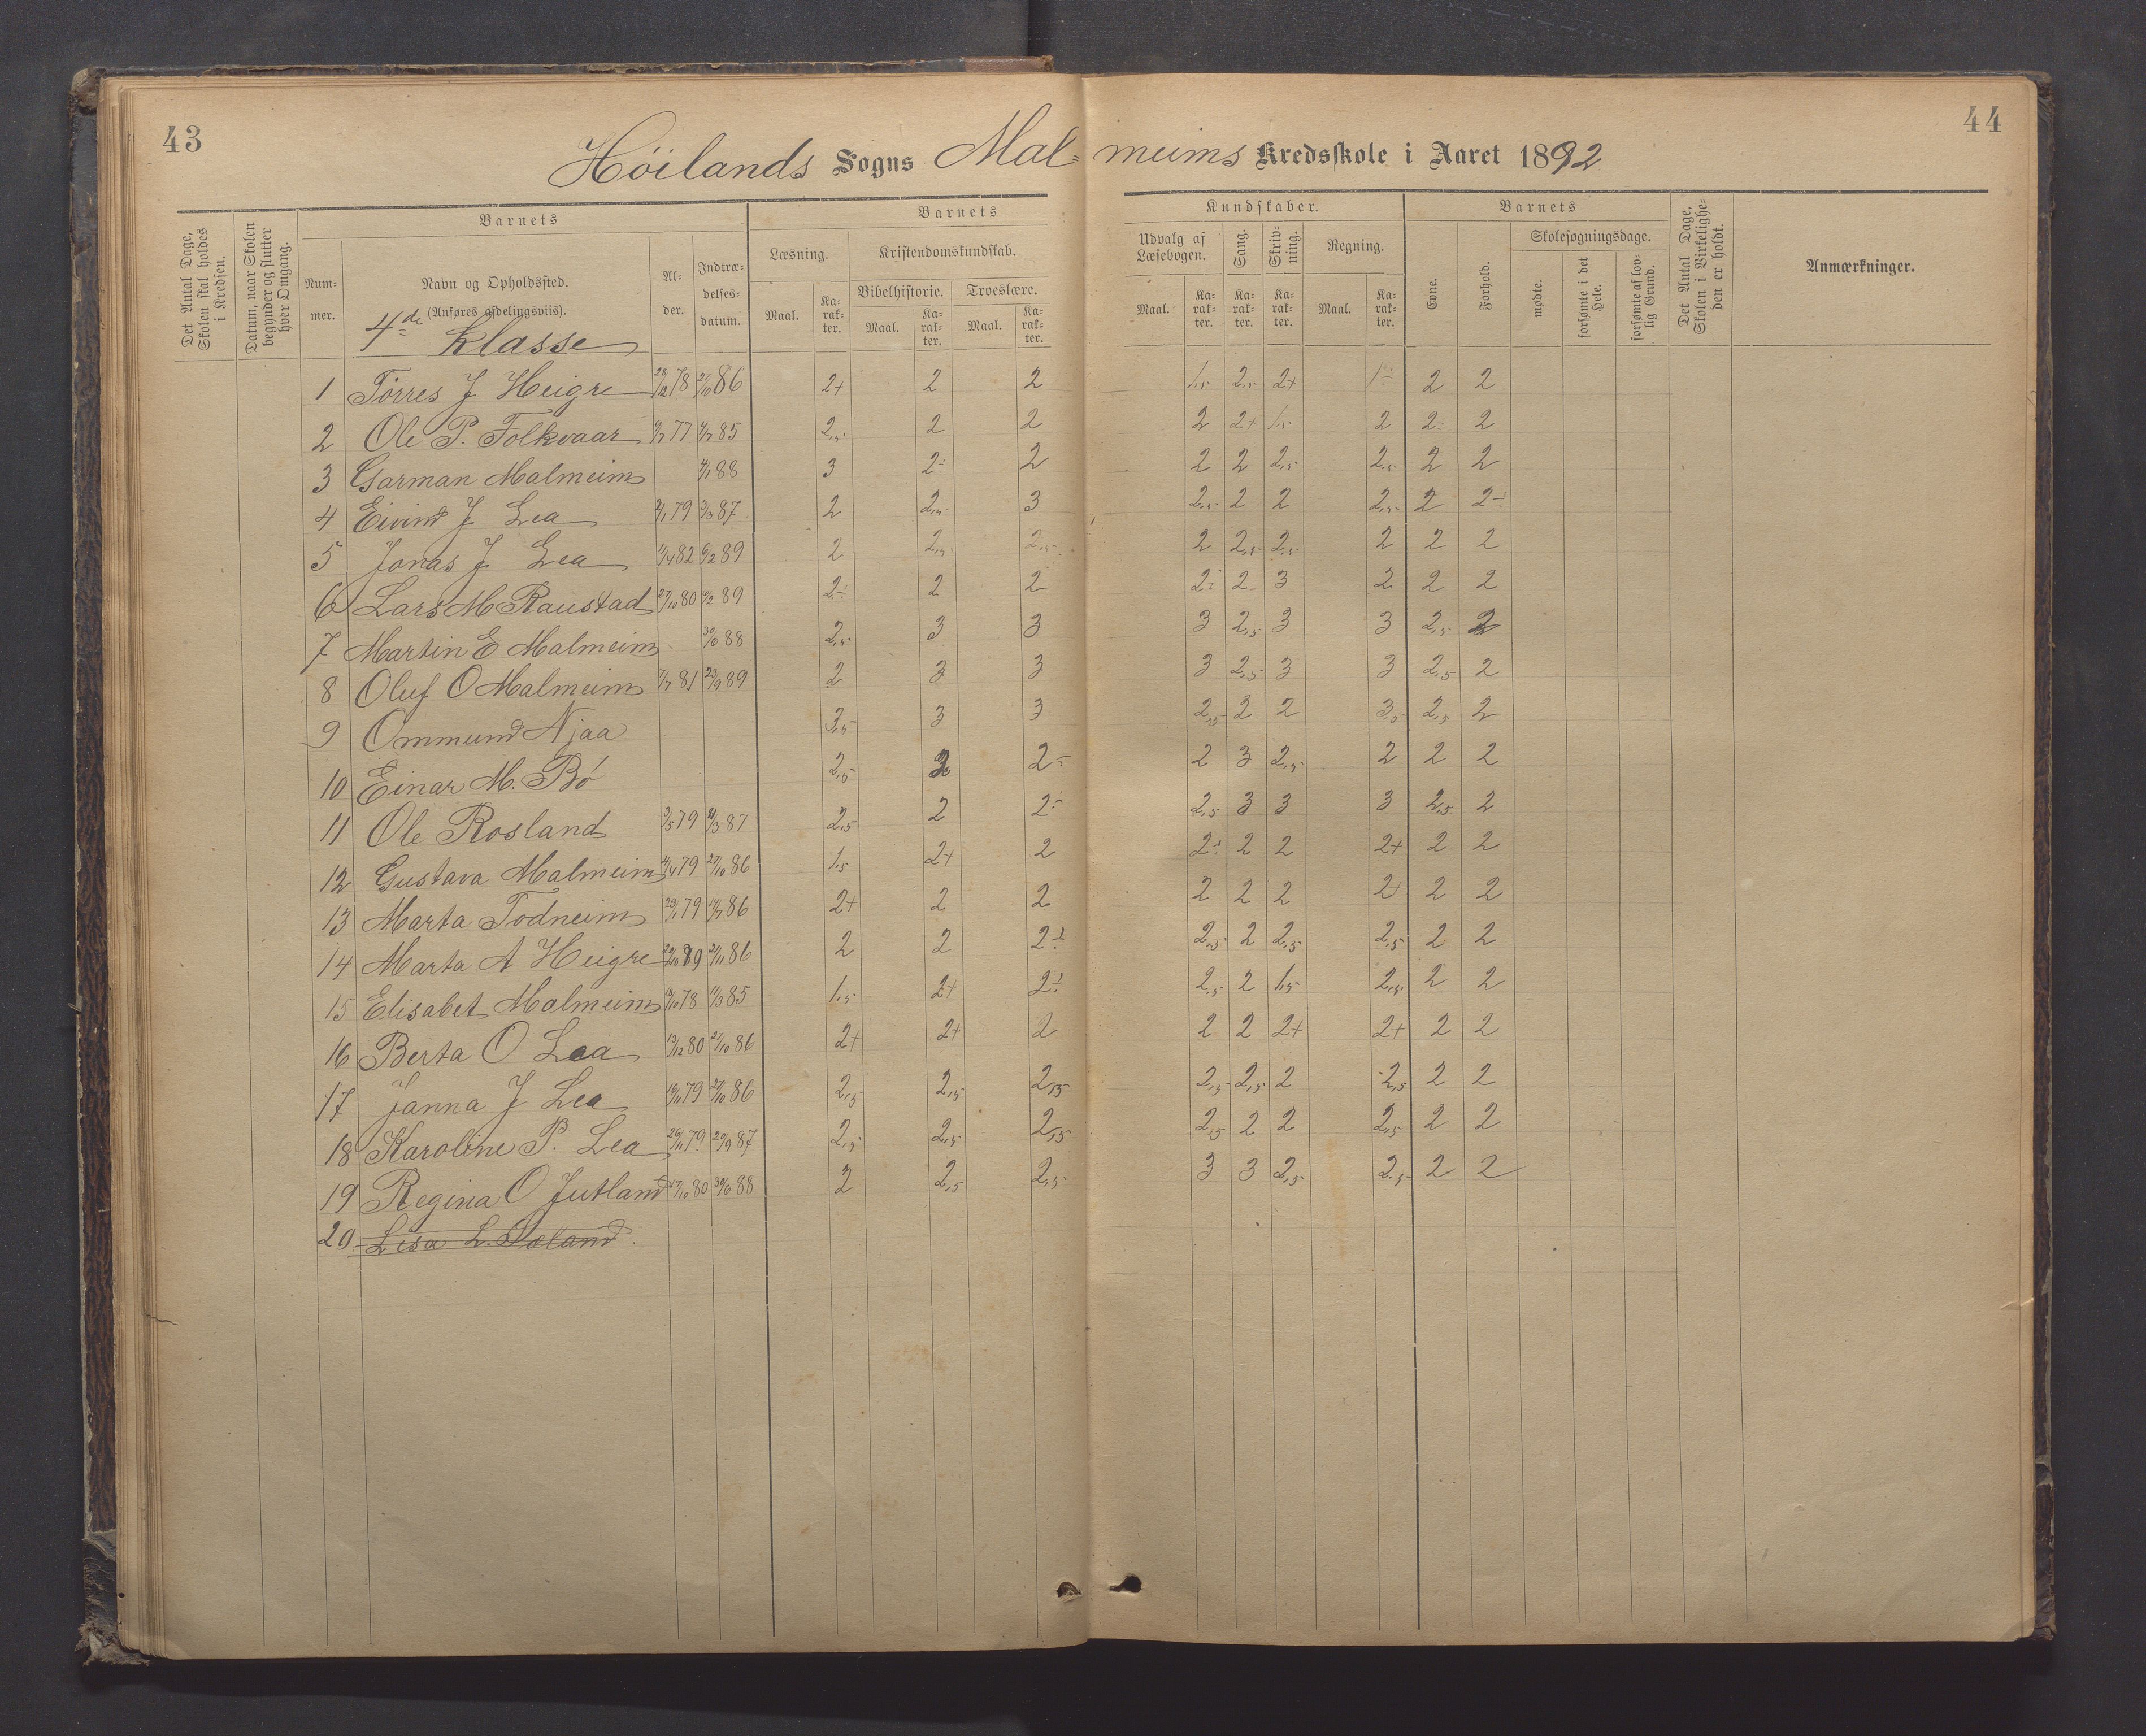 43
44
Höilands Sogns Mal=
meims Kredsskole i Aaret 1892
Det Antal Dage, Skolen skal holdes i Kredsen.
Datum, naar Skolen begynder og slutter hver Omgang.
Barnets
Nummer.
Navn og Opholdssted.
(Anføres afdelingsviis).
4de Klasse
Alder.
Indtrædelsesdatum.
Barnets
Læsning.
Maal.
Karakter.
Kristendomskundskab.
Bibelhistorie.
Maal.
Karakter.
Troeslære.
Maal.
Karakter.
Kundskaber.
Udvalg af Læsebogen.
Maal.
Karakter.
Sang.
Karakter.
Skrivning.
Karakter.
Regning.
Maal.
Karakter.
Barnets
Evne.
Forhold.
Skolesøgningsdage.
mødte.
forsømte i det Hele.
forsømte af lovlig Grund.
Det Antal Dage, Skolen i Virkeligheden er holdt.
Anmærkninger.
1 Tørres J Heigre 28/12 78 27/10 86 2+ 2 2 1,5 2,5 2+ 2 2
2 Ole P. Folkvaar 77 85 2,5 2 2 2 2+ 1,5 2 2÷ 2
3 Garman Malmeim 88 3 2÷ 2 2 2 2,5 2,5 2 2
4 Eivind J Lea 79 87 2 2,5 3 2,5 2 2 2,5 2 2÷
5 Jonas J Lea 82 6/2 89 2 2,5 2,5 2 2,5 2,5 2 2 2
6 Lars M Raustad 27/10 80 89 2÷ 2 2 2÷ 2 3 2 2 2
7 Martin E Malmeim 88 2,5 3 3 3 2,5 3 3 2,5 2
8 Oluf O Malmeim 81 23/9 89 2 3 3 3 2,5 3 3 2,5 2
9 Ommund Njaa 3,5 3 3 2,5 2 2 3,5 2,5 2
10 Einar M. Bö 2,5 2÷ 2 3 2,5 2 2 2
11 Ole Rosland 3/5 79 87 2,5 2 2÷ 2,5 3 3 3 2,5 2
12 Gustava Malmeim 79 27/10 86 1,5 2+ 2 2÷ 2 2 2+ 2 2
13 Marta Todneim 29/1 79 86 2+ 2 2 2 2 2 2+ 2 2
14 Marta A Heigre 86 2 2 2÷ 2,5 2 2,5 2,5 2 2
15 Elisabet Malmeim 78 11/3 85 1,5 2+ 2÷ 2,5 2 1,5 2,5 2 2
16 Berta O Lea 80 27/10 86 2+ 2+ 2 2 2 2+ 2+ 2 2
17 Janna J Lea 79 27/10 86 2,5 2,5 2,5 2,5 2,5 2 2,5 2 2
18 Karoline P. Lea 26/11 79 20/9 87 2,5 2,5 2,5 2,5 2 2 2,5 2 2
19 Regina O Jutland 80 88 2 2,5 2,5 3 3 2,5 2,5 2 2
20 Lisa L.